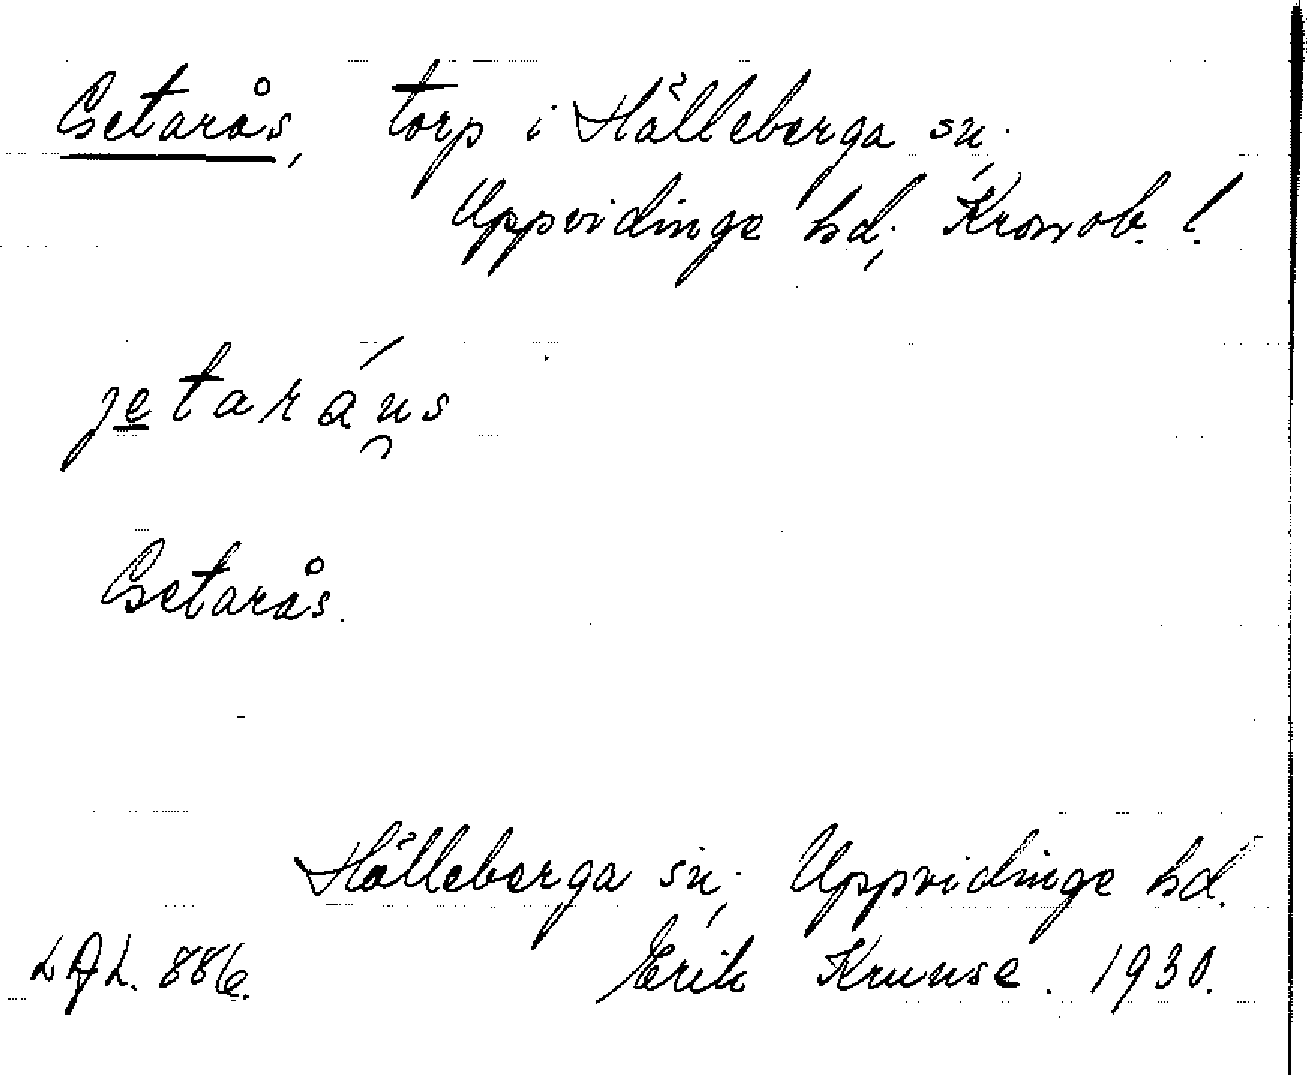 Getarås, torp i Hälleberga sn.,
Uppvidinge hd., Kronob. l.
jetaráu̯s
Getarås.
Hälleberga sn., Uppvidinge hd.
LAL. 886. Erik Kruuse. 1930.